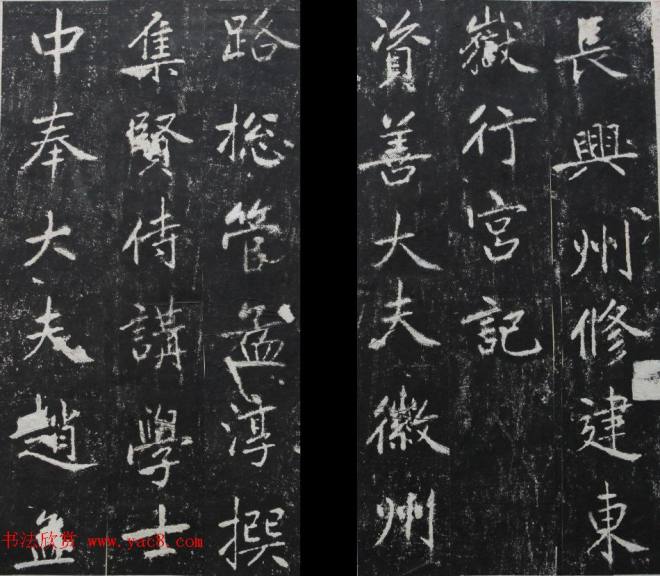 長興州修建東
嶽行宮記
資善大夫徽州
路揔管孟淳撰
集賢侍講學士
中奉大夫趙孟
书法欣赏 www.yac8.com